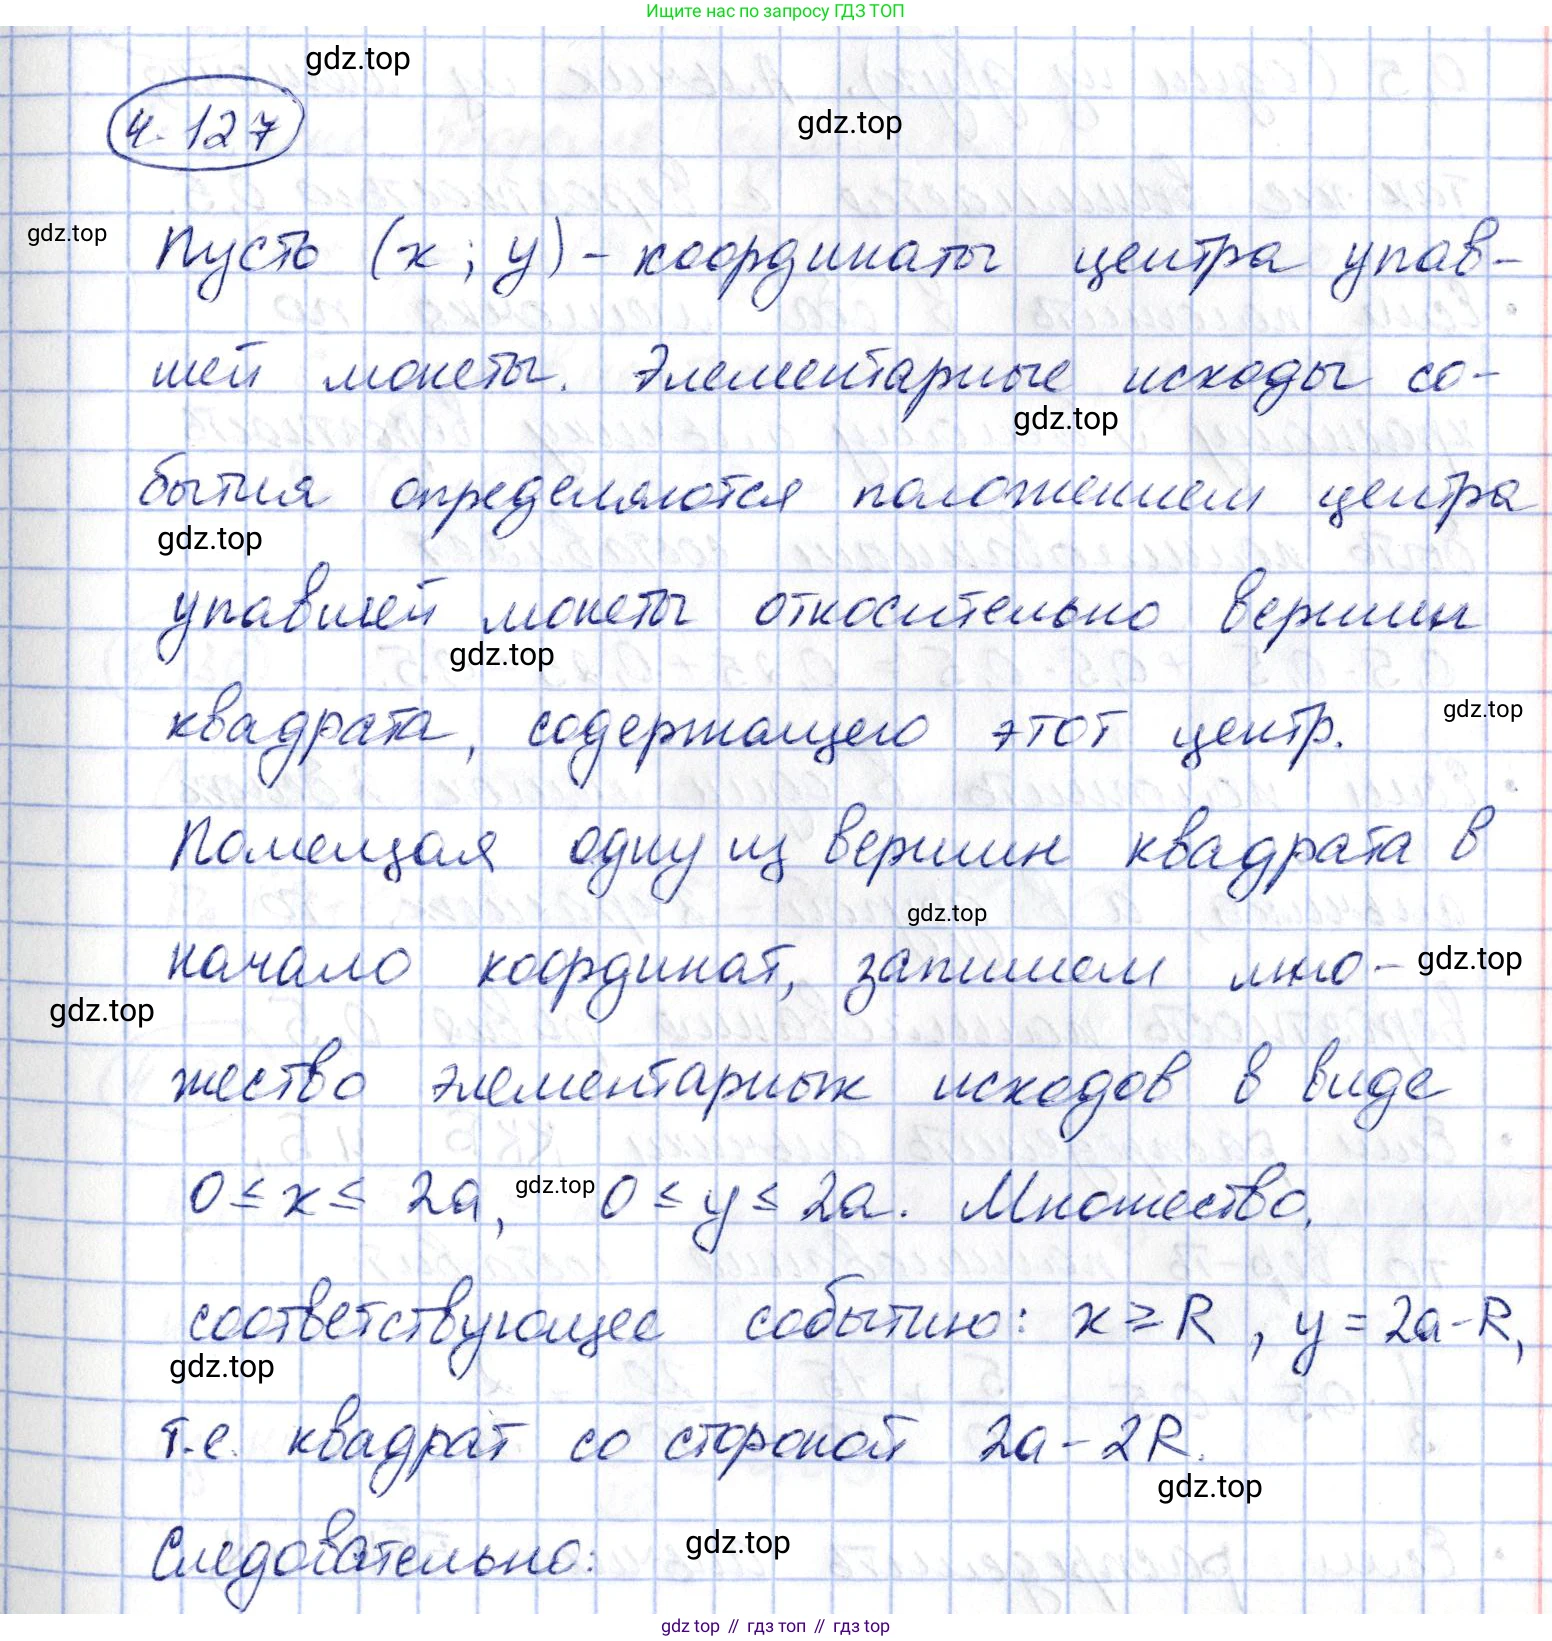 Ищите нас по запросу ГДЗ ТОП
gdz.top
4.127
gdz.top
gdz.top
Пусть (x ; y) - координаты центра упав-
шей монеты. Элементарные исходы со-
gdz.top
бытия определяются положением центра
gdz.top
упавшей монеты относительно вершин
gdz.top
квадрата, содержащего этот центр.
gdz.top
Помещая одну из вершин квадрата в
gdz.top
начало координат, запишем мно-
gdz.top
gdz.top
жество элементарных исходов в виде
0 ≤ x ≤ 2a, gdz.top 0 ≤ y ≤ 2a. Множество,
соответствующее событию: x ≥ R, y = 2a - R,
gdz.top
т.е. квадрат со стороной 2a - 2R.
gdz.top
Следовательно:
gdz.top
gdz top // гдз топ // гдз top